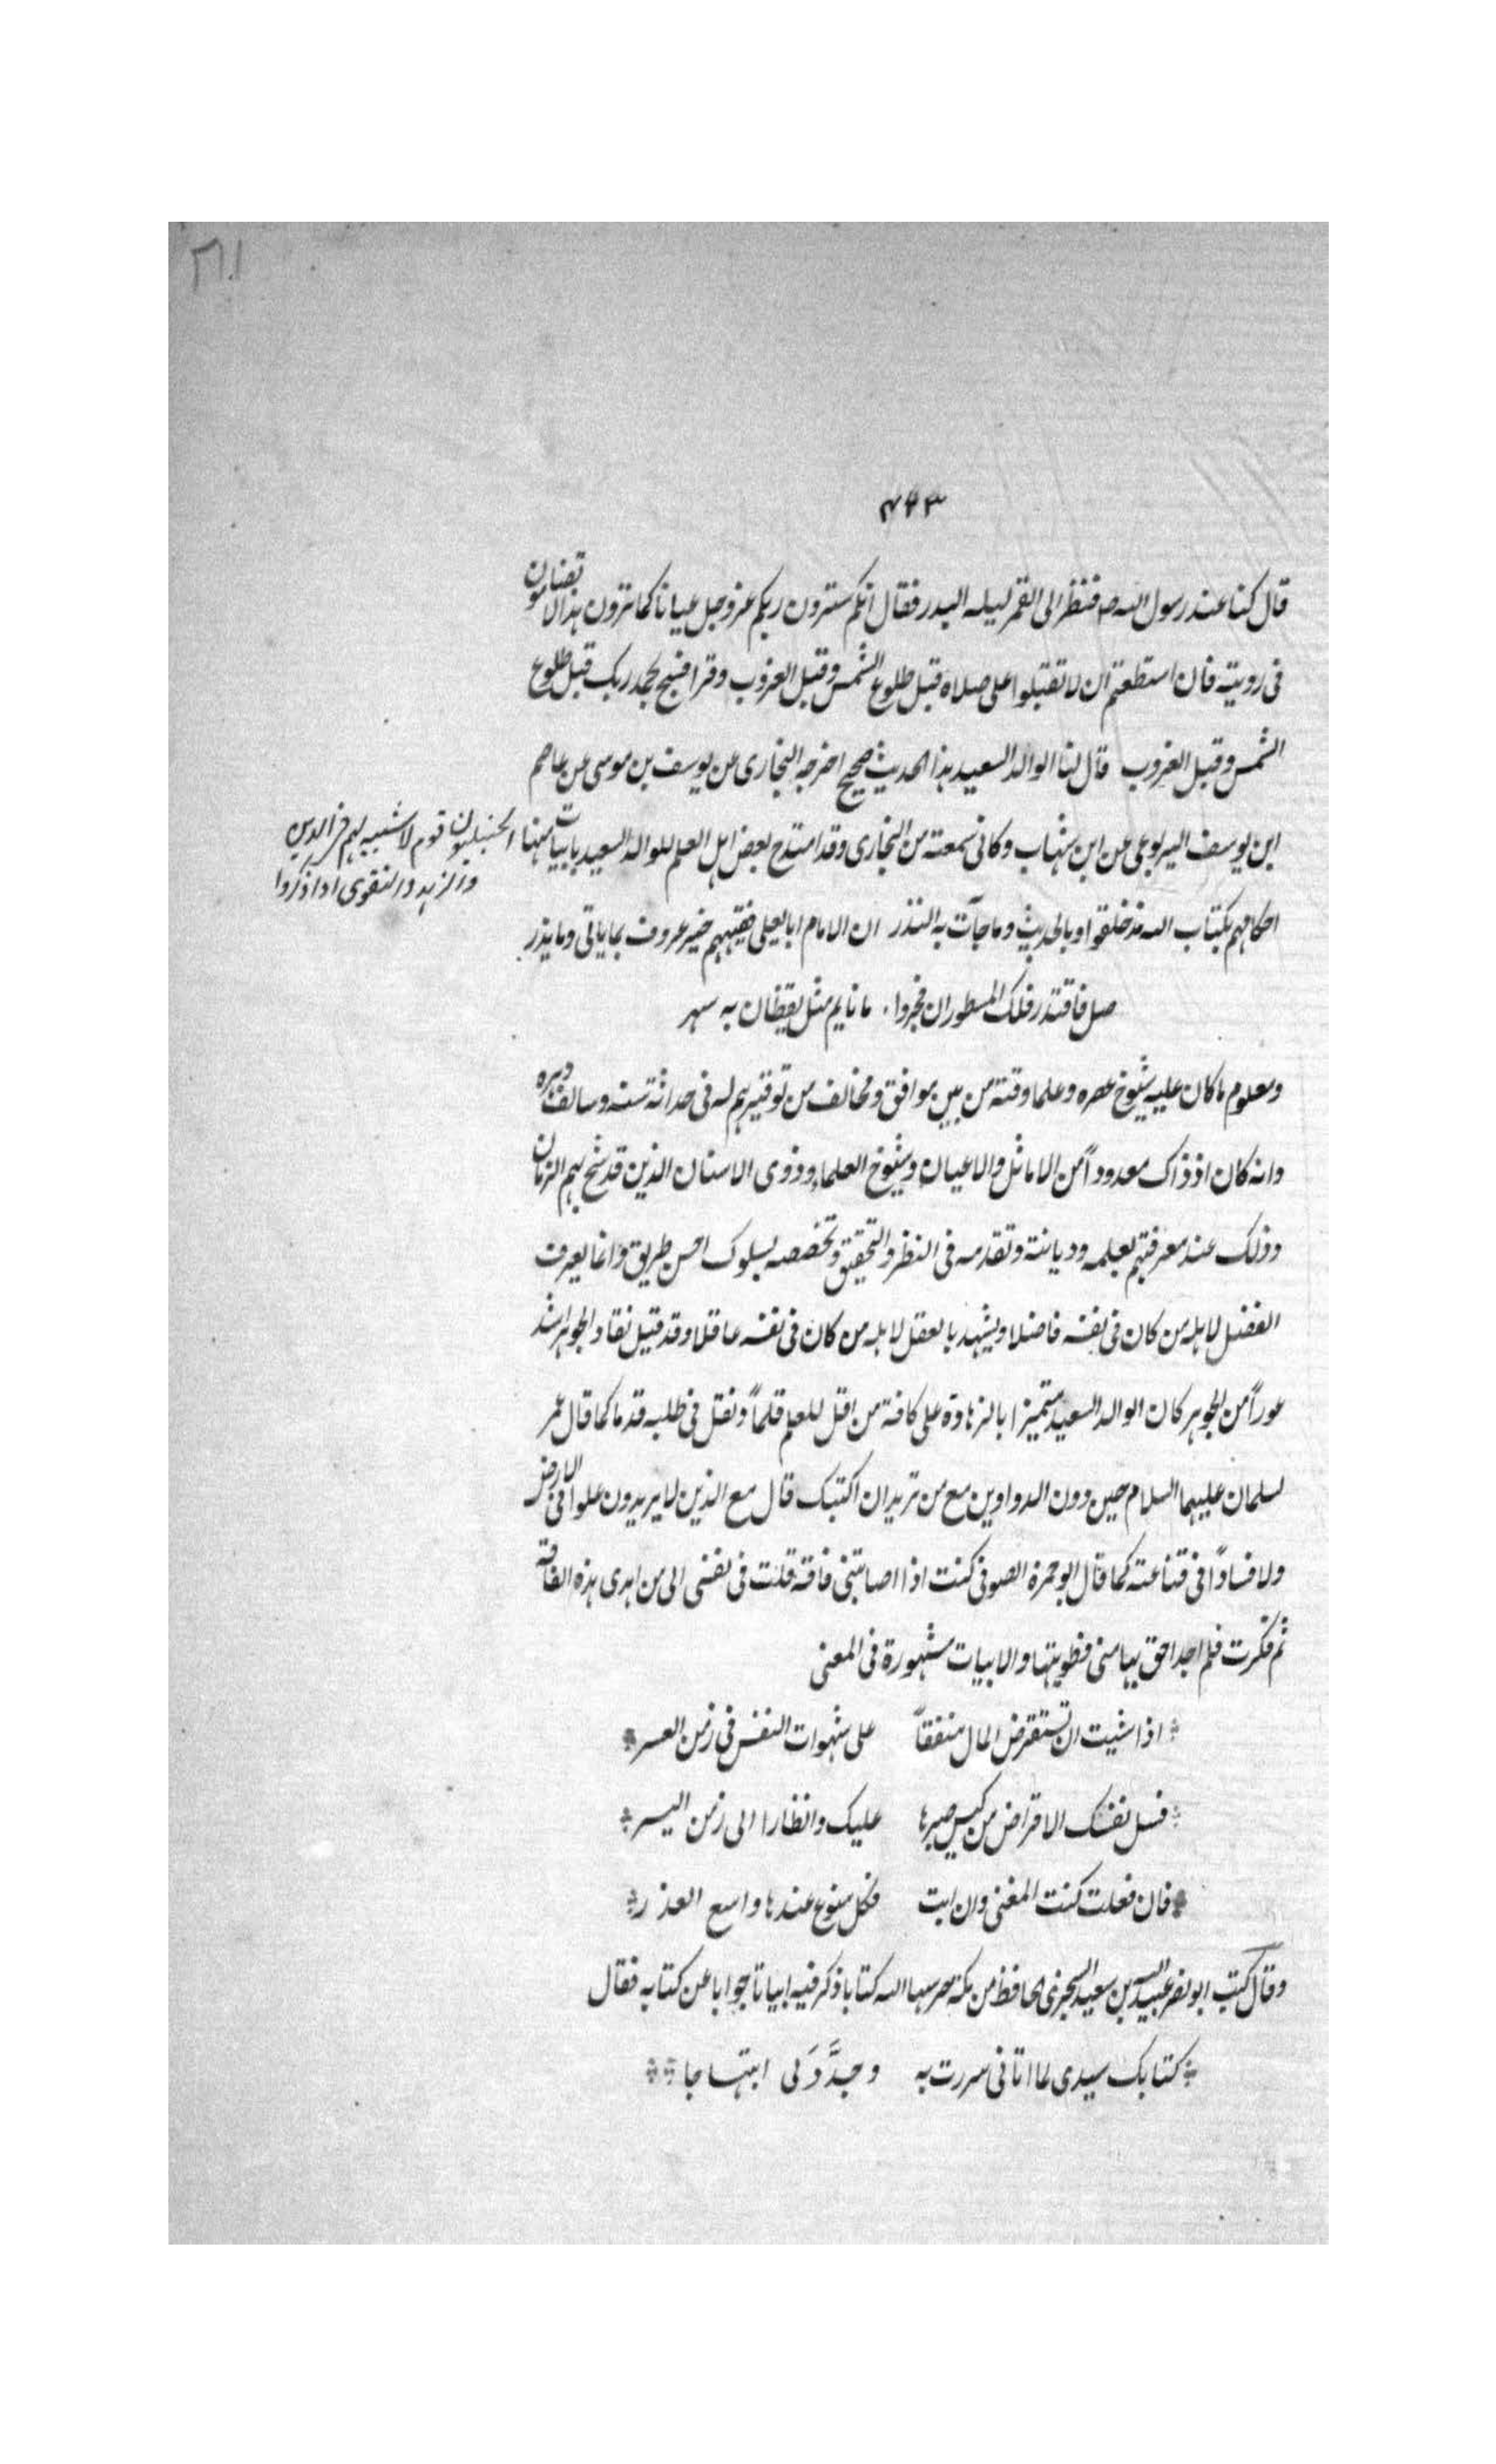 ٢٦١
٤٩٣
قال كنا عند رسول الله ص فنظر الى القمر ليله البدر فقال انكم سترون ربكم عز وجل عيانا كما ترون هذا لا تضامون
فى رويته فان استطعتم ان لا تغلبوا على صلاة قبل طلوع الشمس وقبل الغروب وقرا فسبح بحمد ربك قبل طلوع
الشمس وقبل الغروب قال لنا الوالد السعيد هذا الحديث صحيح اخرجه البخارى عن يوسف بن موسى عن عاصم
ابن يوسف اليربوعى عن ابن شهاب وكانى سمعته من البخارى وقد امتدح بعض اهل العلم للوالد السعيد بابيات منها
الحنبليون قوم لا شبيه لهم فى الدين
والزهد والتقوى اذا ذكروا
احكامهم بكتاب الله مذ خلقوا وبالحديث وما جآت به النذر ان الامام ابا يعلى فقيههم خبير عروف بما ياتى وما يذر
صل فاقتدر فلك المسطور ان فخروا ما نايم مثل يقظان به سهر
ومعلوم ما كان عليه شيوخ عصره وعلما وقته من بين موافق ومخالف من توقيرهم له فى حداثة سنه وسالف دهره
وانه كان اذ ذاك معدوداً من الاماثل والاعيان وشيوخ العلماء وذوى الاسنان الذين قد شح بهم الزمان
وذلك عند معرفتهم بعلمه وديانته وتقدمه فى النظر والتحقيق وتخصصه بسلوك احسن طريق وانما يعرف
الفضل لاهله من كان فى نفسه فاضلا ويشهد بالعقل لاهله من كان فى نفسه عاقلا وقد قيل نقاد الجوهر اشد
عوراً من الجوهر كان الوالد السعيد متميزا بالزهادة على كافة من اقل للعلم قلماً ونقل فى طلبه قدما كما قال عمر
لسلمان عليهما السلام حين دون الدواوين مع من تريد ان اكتبك قال مع الذين لا يريدون علوا فى الارض
ولا فساداً فى قناعته كما قال ابو حمزة الصوفى كنت اذا اصابتنى فاقة قلت فى نفسى الى من اهدى هذه الفاقة
ثم فكرت فلم اجد احق بها منى فطويتها والابيات مشهورة فى المعنى
اذا شيت ان تستقرض المال منفقاً على شهوات النفس فى زمن العسر
فسل نفسك الاقراض من كيس صبرها عليك وانظارا الى زمن اليسر
فان فعلت كنت المغنى وان ابت فكل منوع عندها واسع العذر
وقال كتب ابو نصر عبيد الله بن سعيد السجزى الحافظ من مكة حرسها الله كتابا ذكر فيه ابياتا جوابا عن كتابه فقال
كتابك سيدى لما اتانى سررت به وجدَّدَ لى ابتهاجا